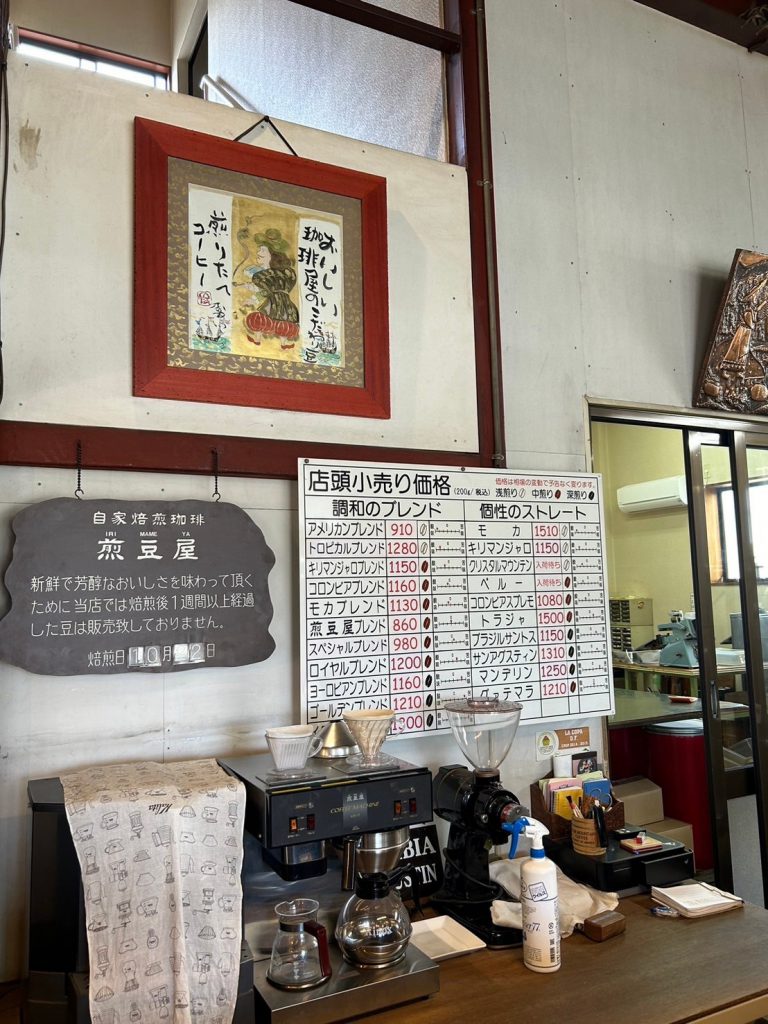 おいしい
珈琲屋のこだわり豆
煎りたて
コーヒー
自家焙煎珈琲
IRI MAME YA
煎豆屋
新鮮で芳醇なおいしさを味わって頂く
ために当店では焙煎後1週間以上経過
した豆は販売致しておりません。
焙煎日10月22日
店頭小売り価格
(200g/税込)
価格は相場の変動で予告なく変ります。
浅煎り 中煎り 深煎り
調和のブレンド
アメリカンブレンド 910
トロピカルブレンド 1280
キリマンブレンド 1150
コロンビアブレンド 1160
モカブレンド 1130
煎豆屋ブレンド 860
スペシャルブレンド 980
ロイヤルブレンド 1200
ヨーロピアンブレンド 1160
ゴールデンブレンド 1210
個性のストレート
モカ 1510
キリマンジャロ 1150
クリスタルマウンテン 入荷待ち
ペルー 入荷待ち
コロンビアスプレモ 1080
トラジャ 1500
ブラジルサントス 1150
サンアグスティン 1310
マンデリン 1250
グァテマラ 1210
煎豆屋
COFFEE MACHINE
Kalita
LA COPA